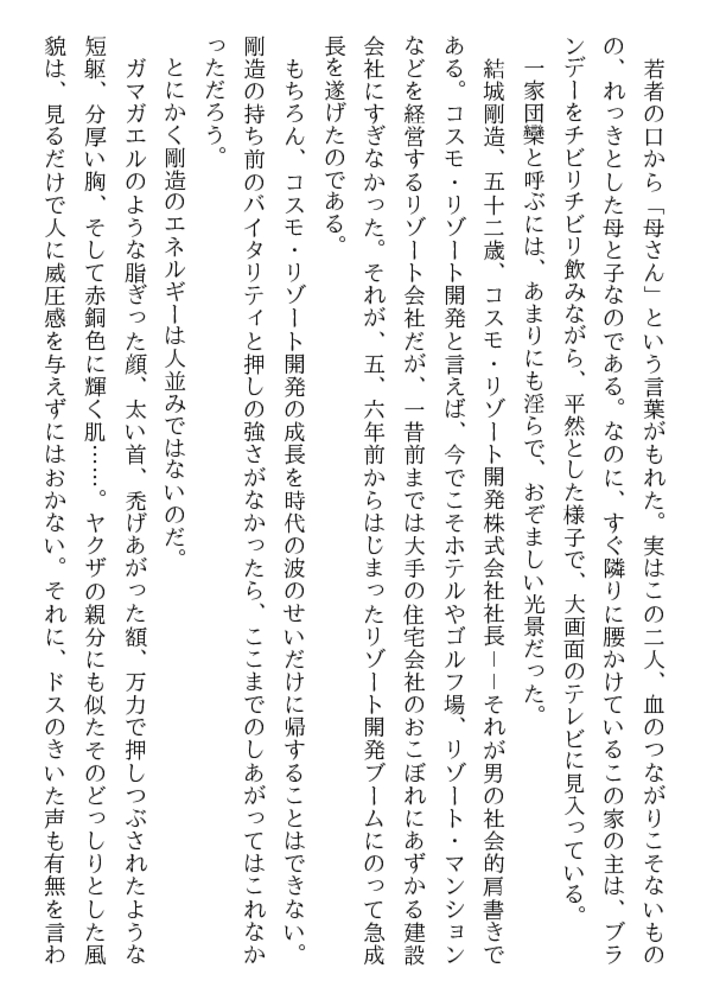 若者の口から「母さん」という言葉がもれた。実はこの二人、血のつながりこそないもの
の、れっきとした母と子なのである。なのに、すぐ隣りに腰かけているこの家の主は、ブラ
ンデーをチビリチビリ飲みながら、平然とした様子で、大画面のテレビに見入っている。
一家団欒と呼ぶには、あまりにも淫らで、おぞましい光景だった。
結城剛造、五十二歳、コスモ・リゾート開発株式会社社長――それが男の社会的肩書きで
ある。コスモ・リゾート開発と言えば、今でこそホテルやゴルフ場、リゾート・マンション
などを経営するリゾート会社だが、一昔前までは大手の住宅会社のおこぼれにあずかる建設
会社にすぎなかった。それが、五、六年前からはじまったリゾート開発ブームにのって急成
長を遂げたのである。
もちろん、コスモ・リゾート開発の成長を時代の波のせいだけに帰することはできない。
剛造の持ち前のバイタリティと押しの強さがなかったら、ここまでのしあがってはこれなか
っただろう。
とにかく剛造のエネルギーは人並みではないのだ。
ガマガエルのような脂ぎった顔、太い首、禿げあがった額、万力で押しつぶされたような
短躯、分厚い胸、そして赤銅色に輝く肌……。ヤクザの親分にも似たそのどっしりとした風
貌は、見るだけで人に威圧感を与えずにはおかない。それに、ドスのきいた声も有無を言わ